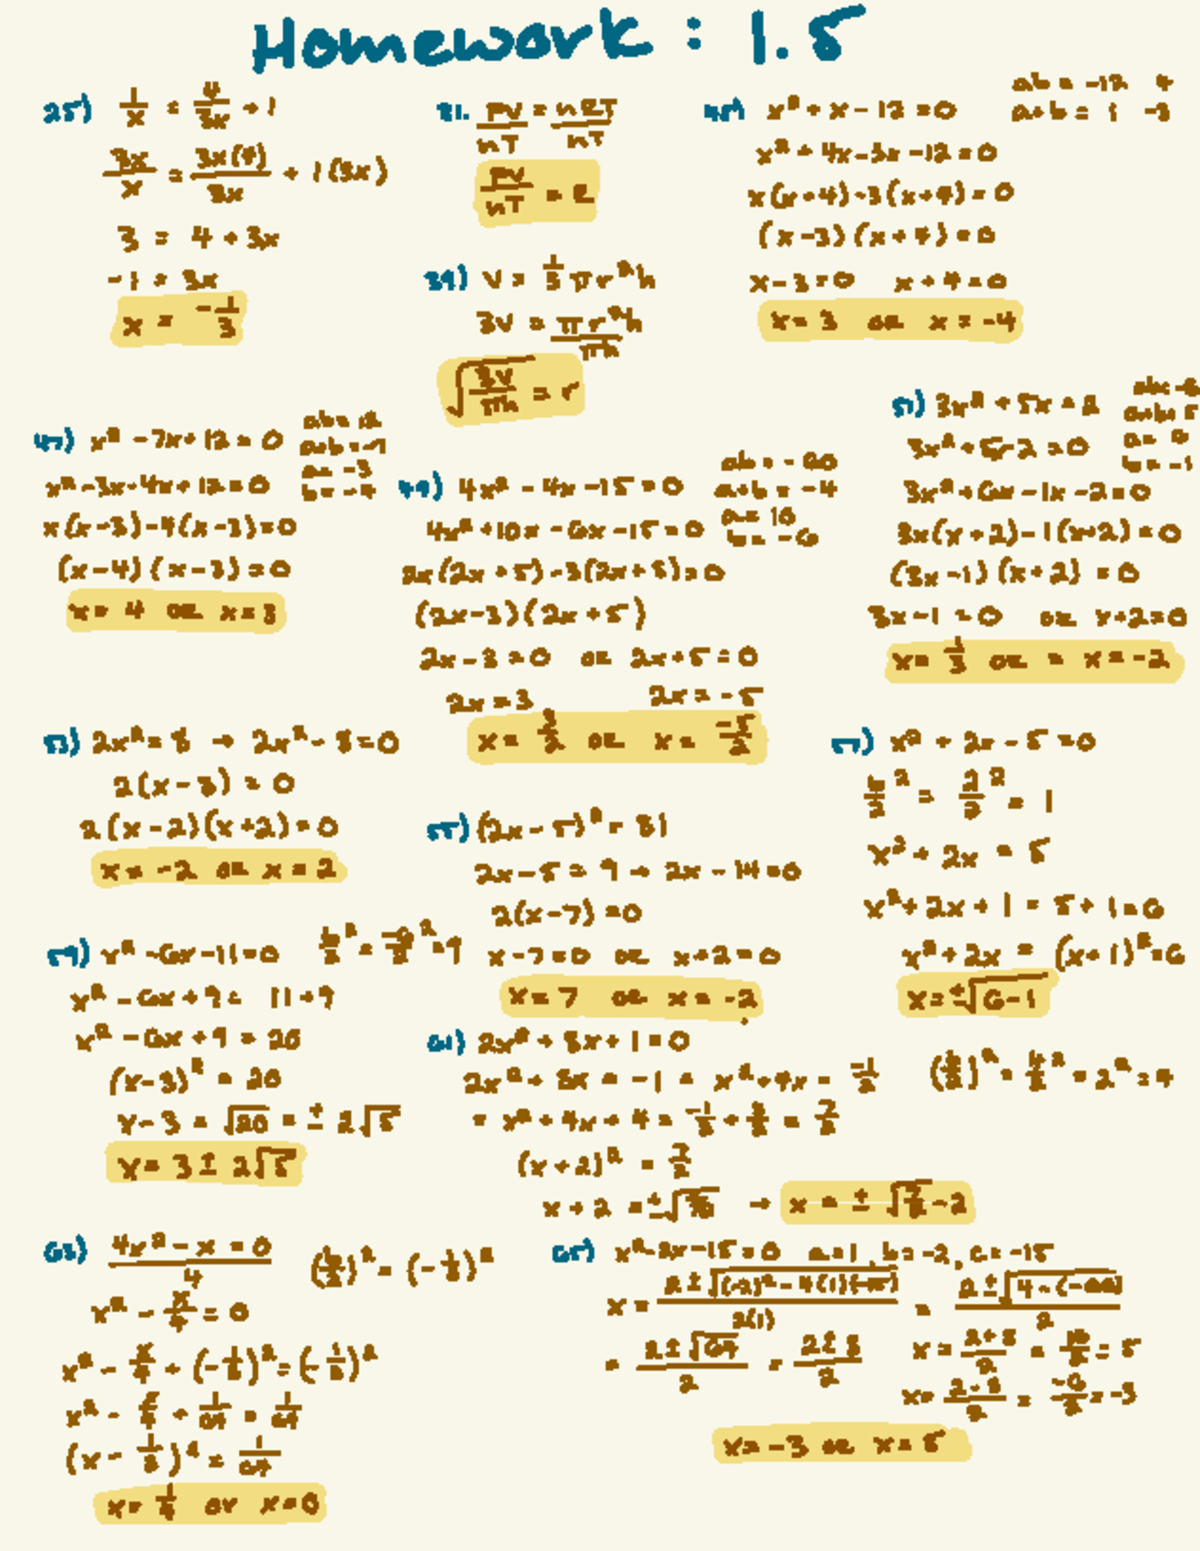 Homework : 1.5
25) 1/x = 4/3x + 1
3x/x = 3x(4)/3x + 1(3x)
3 = 4 + 3x
-1 = 3x
x = -1/3
31. PV/nT = nRT/nT
PV/nT = R
39) V = 1/3 πr²h
3V = πr²h/πh
√(3V/πh) = r
x² + x - 12 = 0
ab = -12 4
a+b = 1 -3
x² + 4x - 3x - 12 = 0
x(x+4) - 3(x+4) = 0
(x-3)(x+4) = 0
x-3=0 x+4=0
x = 3 or x = -4
47) x² - 7x + 12 = 0
ab = 12
a+b = -7
a = -3
b = -4
x² - 3x - 4x + 12 = 0
x(x-3) - 4(x-3) = 0
(x-4)(x-3) = 0
x = 4 or x = 3
49) 4x² - 4x - 15 = 0
a+b = -4
a = 10
b = -6
4x² + 10x - 6x - 15 = 0
2x(2x+5) - 3(2x+5) = 0
(2x-3)(2x+5)
2x-3=0 or 2x+5=0
2x = 3 2x = -5
x = 3/2 or x = -5/2
51) 3x² + 5x = 2
a+b = 5
b = -1
3x² + 5x - 2 = 0
3x² + 6x - 1x - 2 = 0
3x(x+2) - 1(x+2) = 0
(3x-1)(x+2) = 0
3x-1 = 0 or x+2=0
x = 1/3 or = x = -2
53) 2x² = 8 → 2x² - 8 = 0
2(x-2)(x+2) = 0
x = -2 or x = 2
55) (2x-5)² = 81
2x-5 = 9 → 2x - 14 = 0
2(x-7) = 0
x-7=0 or x+2=0
x = 7 or x = -2
57) x² + 2x - 5 = 0
b/2² = 2/2² = 1
x² + 2x = 5
x² + 2x + 1 = 5 + 1 = 6
x² + 2x = (x+1)² = 6
x = ±√6-1
59) x² - 6x - 11 = 0 b/2² = -6/2² = 9
x² - 6x + 9 = 11 + 9
x² - 6x + 9 = 20
(x-3)² = 20
x - 3 = √20 = ± 2√5
x = 3 ± 2√5
61) 2x² + 8x + 1 = 0
2x² + 8x = -1 = x² + 4x = -1/2 (b/2)² = 4/2² = 2² = 4
= x² + 4x + 4 = -1/2 + 8/2 = 7/2
(x+2)² = 7/2
x + 2 = ±√7/2 → x = ± √7/2 - 2
63) 4x² - x = 0/4 (b/2)² = (-1/8)²
x² - x/4 = 0
x² - x/4 + (-1/8)² = (-1/8)²
x² - x/4 + 1/64 = 1/64
(x - 1/8)² = 1/64
x = 1/4 or x = 0
65) x² - 2x - 15 = 0 a=1, b=-2, c=-15
x = 2 ± √(-2)² - 4(1)(-15)/2(1) = 2 ± √4-(-60)/2
= 2 ± √64/2 = 2 ± 8/2
x = 2+8/2 = 10/2 = 5
x = 2-8/2 = -6/2 = -3
x = -3 or x = 5